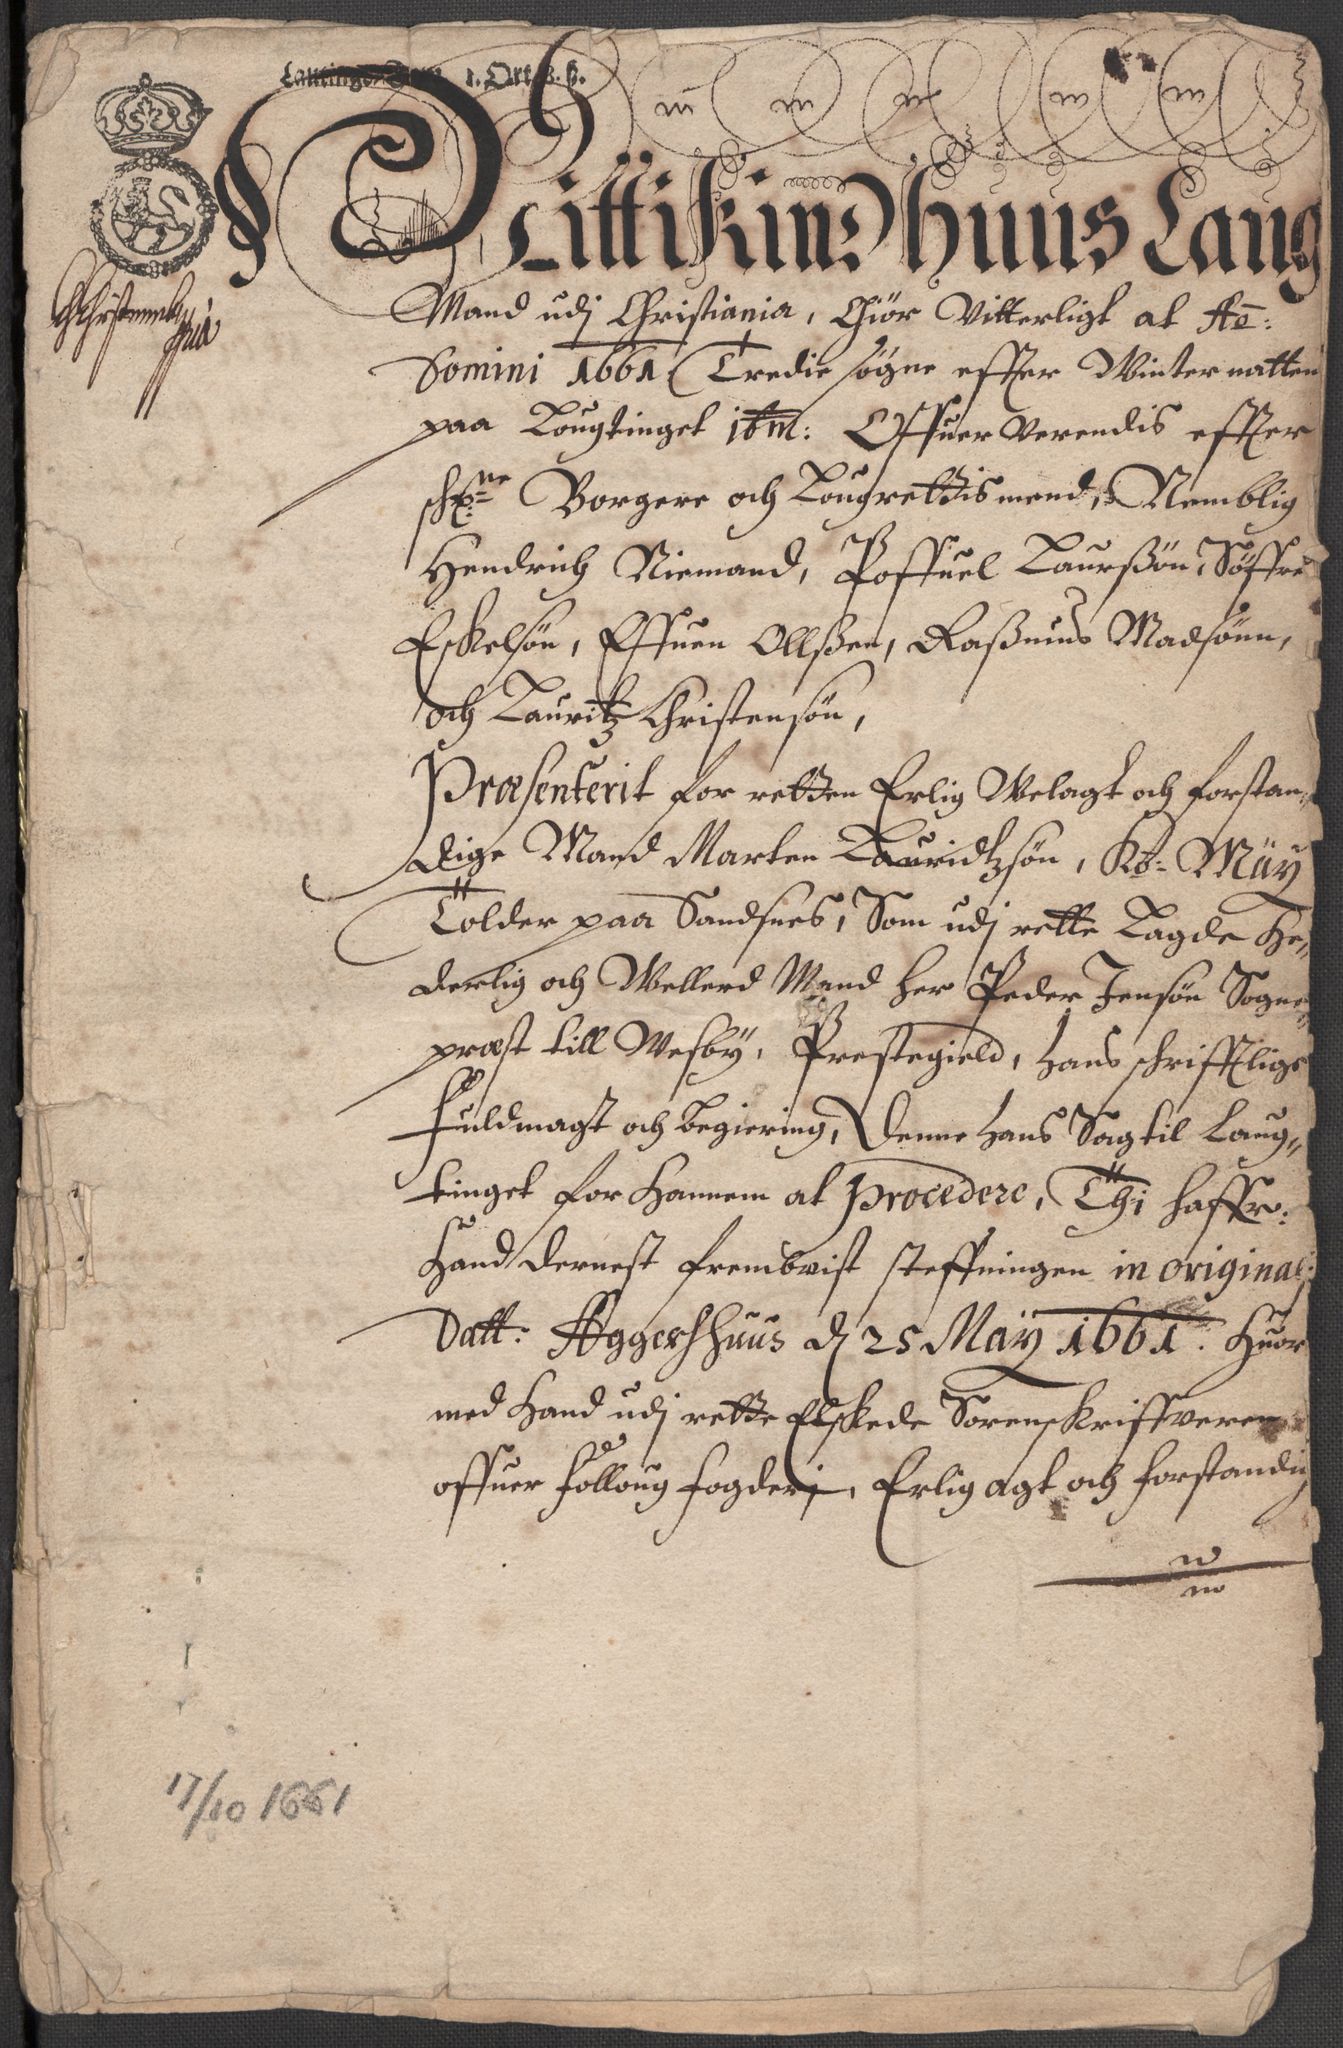 1. Ort. 3. ß.
Wittikind Huus Laug
Mand udj Christiania, Giör Vitterligt at Ao:
Domini 1661 Tredie søgne effter Winternatten
paa Lougtinget ibm: Offuer Verendis effter
schr:ne Borgere och Lougrettismend, Nemblig
Hendrich Niemand, Poffuel Laurßön, Söffre
Eskelsön, Effuen Ollßen, Raßmus Madsönn,
och Lauritz Christensön,
Præsenterit for retten Erlig Welagt och forstan¬
dige Mand Marten Lauridtzsön, Ko: May
Tolder paa Sandsnes, Som udj rette Lagde He¬
derlig och Wellerd Mand her Peder Jensön Sogne
præst till Wesby, Prestegield, hans schrifftlige
Fuldmagt och begiering, Denne hans Sag til Laug¬
tinget for hannem at Procedere, Thi haffr:
hand dernest frembvist steffningen in originalj
Datt: Aggershuus d 25 May 1661. Huor
med hand udj rette Eskede Sorenskriffveren
offuer Folloug fogderj, Erlig agt och forstandig
17/10 1661